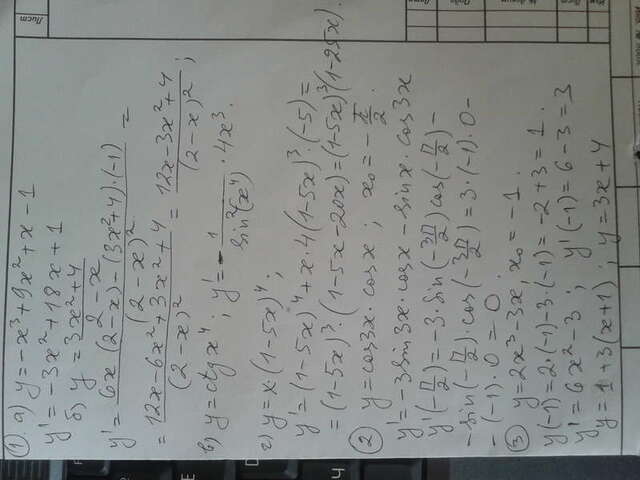 ① а) y = -x³ + 9x² + x - 1
y' = -3x² + 18x + 1
б) y = (3x² + 4)/(2 - x)
y' = (6x(2 - x) - (3x² + 4)·(-1))/(2 - x)² =
= (12x - 6x² + 3x² + 4)/(2 - x)² = (12x - 3x² + 4)/(2 - x)²;
в) y = ctg x⁴; y' = - 1/sin²(x⁴) · 4x³.
г) y = x(1 - 5x)⁴;
y' = (1 - 5x)⁴ + x·4(1 - 5x)³·(-5) =
= (1 - 5x)³·(1 - 5x - 20x) = (1 - 5x)³(1 - 25x).
② y = cos3x·cosx; x₀ = -π/2.
y' = -3sin3x·cosx - sinx·cos3x
y'(-π/2) = -3·sin(-3π/2)cos(-π/2) -
- sin(-π/2)·cos(-3π/2) = 3·(-1)·0 -
- (-1)·0 = 0.
③ y = 2x³ - 3x; x₀ = -1.
y(-1) = 2·(-1) - 3·(-1) = -2 + 3 = 1.
y' = 6x² - 3; y'(-1) = 6 - 3 = 3
y = 1 + 3(x + 1); y = 3x + 4
Лист
Изм
Лист
Подп